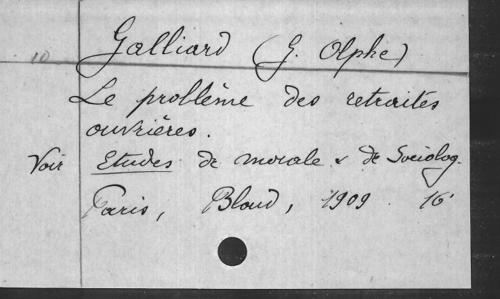 Galliard (G. Olphe)
10
Le problème des retraites
ouvrières.
Voir Etudes de morale & de Sociolog.
Paris, Bloud, 1909. 16°